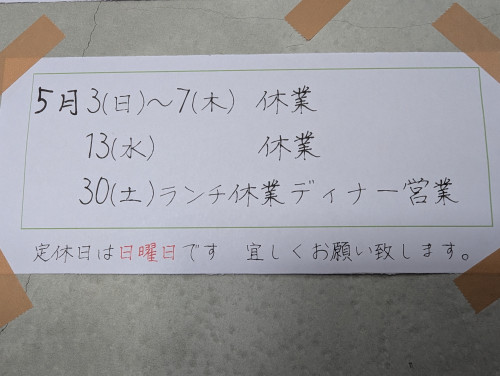 5月3(日)〜7(木) 休業
13(水) 休業
30(土)ランチ休業ディナー営業
定休日は日曜日です 宜しくお願い致します。